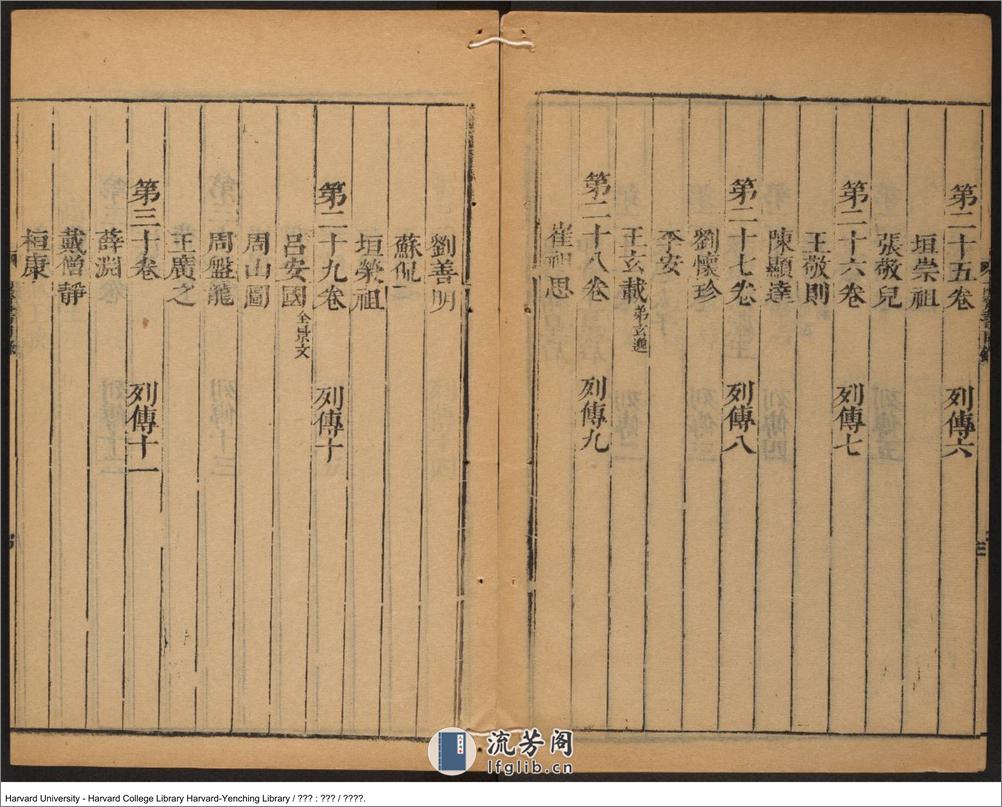 第二十五卷 列傳六
垣崇祖
張敬兒
第二十六卷 列傳七
王敬則
陳顯達
第二十七卷 列傳八
劉懷珍
李安
王玄載 弟玄邈
第二十八卷 列傳九
崔祖思
劉善明
蘇侃
垣榮祖
第二十九卷 列傳十
呂安國 全景文
周山圖
周盤龍
王廣之
第三十卷 列傳十一
薛淵
戴僧靜
桓康
流芳阁
lfglib.cn
Harvard University - Harvard College Library Harvard-Yenching Library / ??? : ??? / ????.